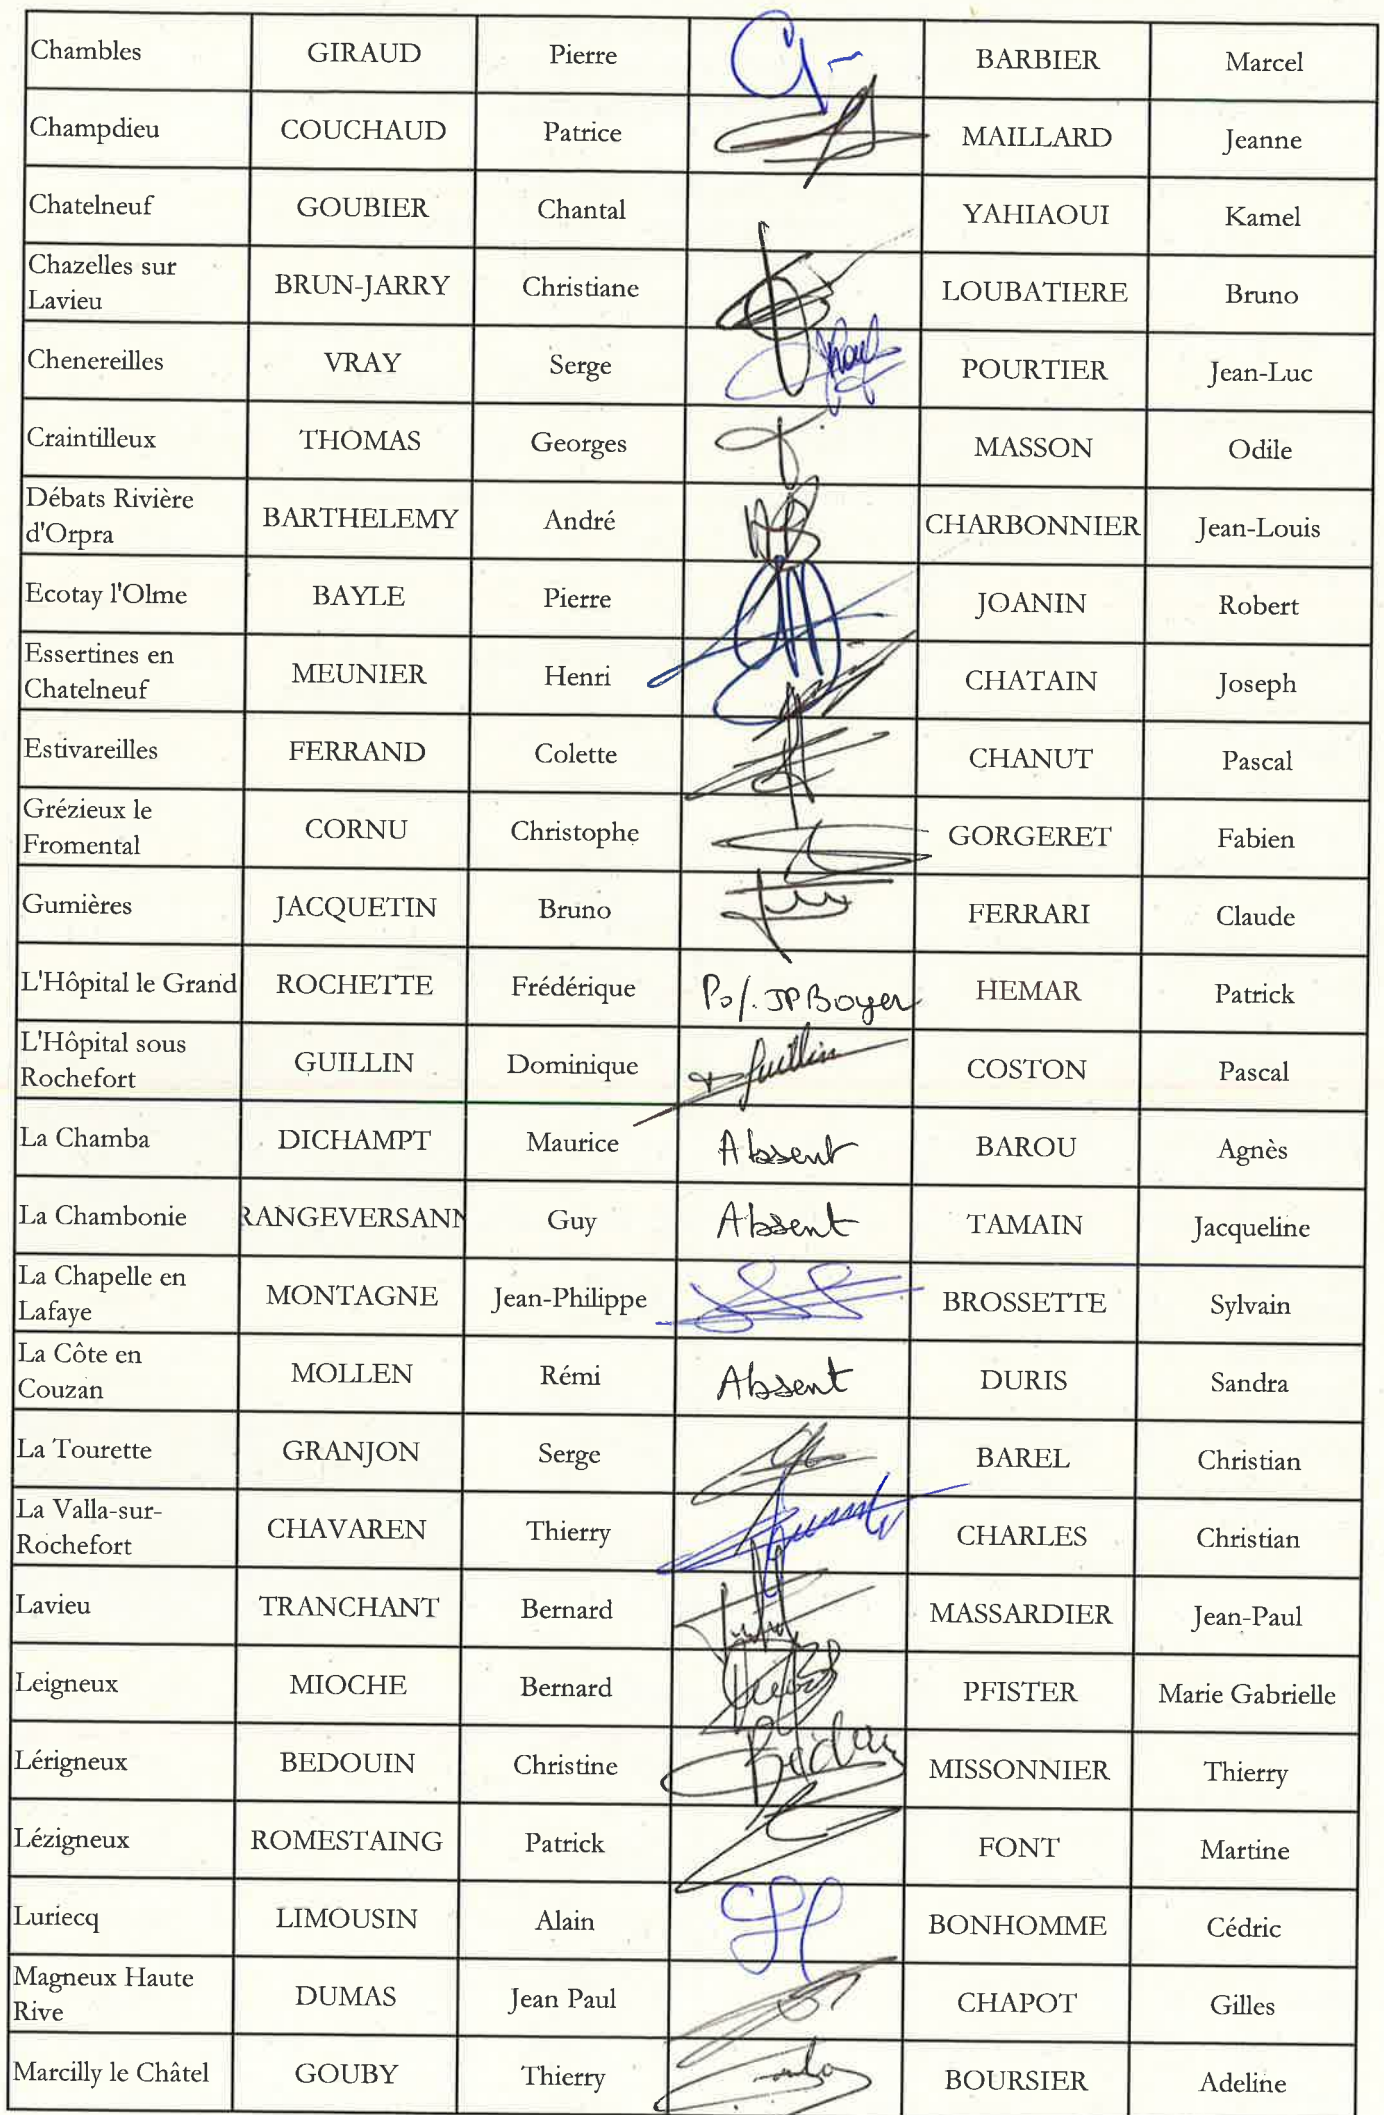 Chambles GIRAUD Pierre BARBIER Marcel
Champdieu COUCHAUD Patrice MAILLARD Jeanne
Chatelneuf GOUBIER Chantal YAHIAOUI Kamel
Chazelles sur
Lavieu BRUN-JARRY Christiane LOUBATIERE Bruno
Chenereilles VRAY Serge POURTIER Jean-Luc
Craintilleux THOMAS Georges MASSON Odile
Débats Rivière
d'Orpra BARTHELEMY André CHARBONNIER Jean-Louis
Ecotay l'Olme BAYLE Pierre JOANIN Robert
Essertines en
Chatelneuf MEUNIER Henri CHATAIN Joseph
Estivareilles FERRAND Colette CHANUT Pascal
Grézieux le
Fromental CORNU Christophe GORGERET Fabien
Gumières JACQUETIN Bruno FERRARI Claude
L'Hôpital le Grand ROCHETTE Frédérique Po/. JP Boyer HEMAR Patrick
L'Hôpital sous
Rochefort GUILLIN Dominique Guillin COSTON Pascal
La Chamba DICHAMPT Maurice Absent BAROU Agnès
La Chambonie RANGEVERSANN Guy Absent TAMAIN Jacqueline
La Chapelle en
Lafaye MONTAGNE Jean-Philippe BROSSETTE Sylvain
La Côte en
Couzan MOLLEN Rémi Absent DURIS Sandra
La Tourette GRANJON Serge BAREL Christian
La Valla-sur-
Rochefort CHAVAREN Thierry CHARLES Christian
Lavieu TRANCHANT Bernard MASSARDIER Jean-Paul
Leigneux MIOCHE Bernard PFISTER Marie Gabrielle
Lérigneux BEDOUIN Christine MISSONNIER Thierry
Lézigneux ROMESTAING Patrick FONT Martine
Luriecq LIMOUSIN Alain BONHOMME Cédric
Magneux Haute
Rive DUMAS Jean Paul CHAPOT Gilles
Marcilly le Châtel GOUBY Thierry BOURSIER Adeline